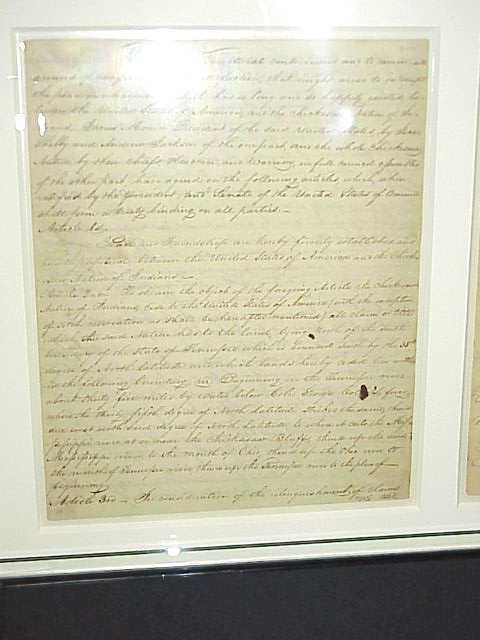 to remove all
ground of
that might arise to interrupt
the so long and so happily
between the United States of America and the Chickasaw Nation of
James Monroe President of the said United States by Isaac
Shelby and Andrew Jackson of the one part and the whole Chickasaw
Nation by their chiefs Headmen and Warriors in full council assembled
of the other part have agreed on the following articles which when
ratified by the President and Senate of the United States of America
shall form a treaty binding on all parties.—
Article 1st
Peace and Friendship are hereby firmly established and
between the United States of America and the Chicka
saw Nation of Indians—
To obtain the object of the forgoing Article the Chickasaw
Nation of Indians cede to the United States of America (with the exception
of such reservation as shall be hereafter mentioned) all claim or title
which the said Nation has to the land lying North of the South
boundary of the State of Tennessee which is bounded South by the 35th
degree of North Latitude and which lands hereby ceded
the following boundary Viz Beginning on the Tennessee river
about thirty five miles by water below Colo George Colberts ferry
where the thirty fifth degree of North Latitude strikes the same, thence
due west with said degree of North Latitude to where it cuts the Miss
issippi river at or near the Chickasaw Bluffs, thence up the said
Mississippi river to the mouth of Ohio, thence up the Ohio river to
the mouth of Tennessee river, thence up the Tennessee river to the place of
beginning.
Article 3rd — In consideration of the relinquishment of claim